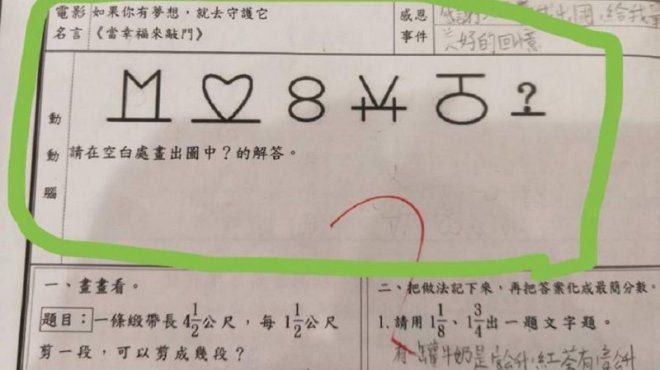 電影 如果你有夢想,就去守護它
名言 《當幸福來敲門》
感恩
事件
美好的回憶
?
動動腦
請在空白處畫出圖中?的解答。
一、畫畫看。
題目:一條緞帶長4 1/2公尺,每1 1/2公尺
剪一段,可以剪成幾段?
二、把做法記下來,再把答案化成最簡分數。
1.請用1 1/8、1 3/4出一題文字題。